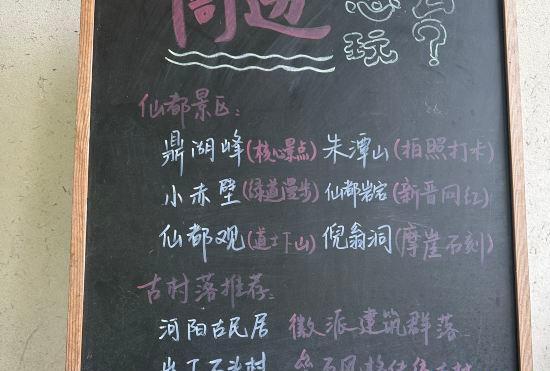 周边怎么玩?
仙都景区:
鼎湖峰(核心景点) 朱潭山(拍照打卡)
小赤壁(绿道漫步) 仙都岩宕(新晋网红)
仙都观(道士下山) 倪翁洞(摩崖石刻)
古村落推荐:
河阳古民居 徽派建筑群落